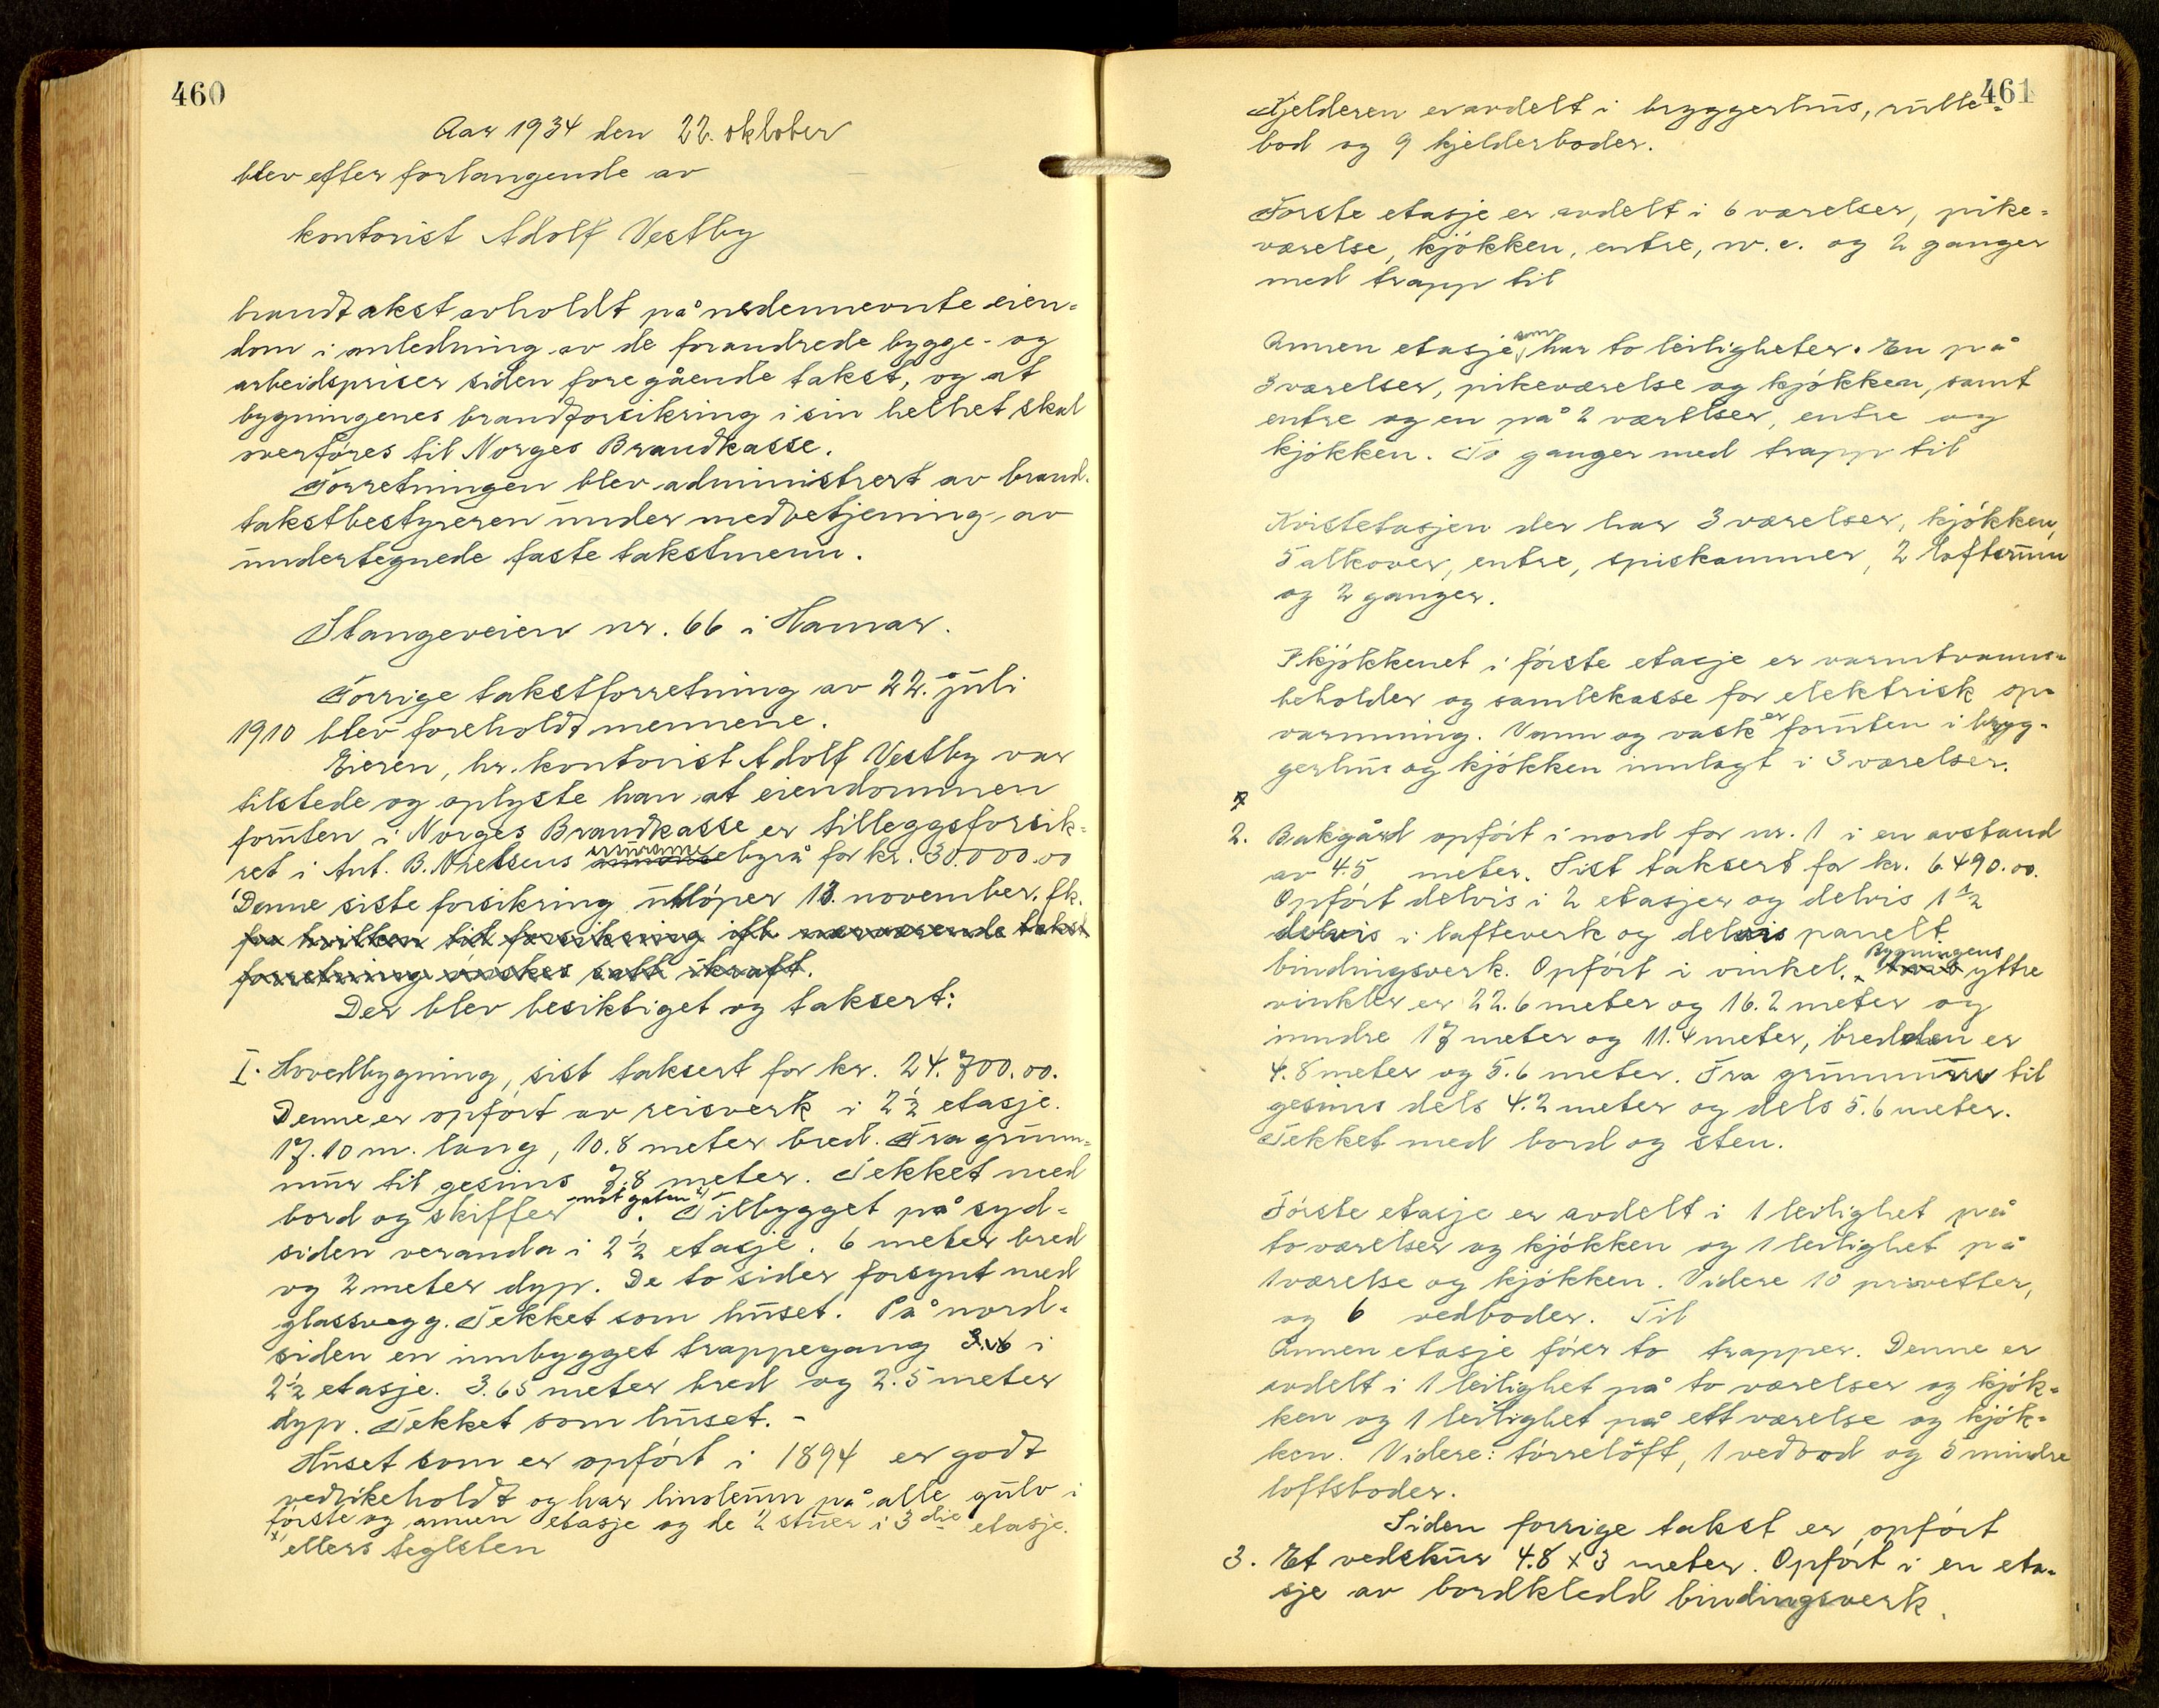 460
Aar 1934 den 22. oktober
blev efter forlangende av
kontorist Adolf Vestby
brandtakst avholdt på nedennevnte eien-
dom i anledning av de forandrede bygge- og
arbeidspriser siden foregående takst, og at
bygningenes brandforsikring i sin helhet skal
overføres til Norges Brandkasse.
Forretningen blev administrert av brand-
takstbestyreren under medbetjening av
undertegnede faste takstmenn.
Stangeveien nr. 66 i Hamar.
Forrige takstforretning av 22. juli
1910 blev foreholdt mennene.
Eieren, hr. kontorist Adolf Vestby var
tilstede og oplyste han at eiendommen
foruten i Norges Brandkasse er tilleggsforsik-
ret i Ant. B. Nielsens byrå for kr. 30.000.00
Denne siste forsikring utløper 13. november. fk.
for hvilken tid forsikring ifl. nærværende takst
forretning ønskes satt ikraft.
Der blev besiktiget og taksert:
I. Hovedbygning, sist taksert for kr. 24.700.00.
Denne er opført av reisverk i 2½ etasje.
17.10 m. lang, 10.8 meter bred. Fra grunn-
mur til gesims 7.8 meter. Tekket med
bord og skiffer mot gaten x). Tilbygget på syd-
siden veranda i 2½ etasje. 6 meter bred
og 2 meter dyp. De to sider forsynt med
glassvegg. Tekket som huset. På nord-
siden en innbygget trappegang i
2½ etasje. 3.65 meter bred og 2.5 meter
dyp. Tekket som huset. -
Huset som er opført i 1894 er godt
vedlikeholdt og har linoleum på alle gulv i
første og annen etasje og de 2 stuer i 3die etasje.
x) ellers teglsten
461
Kjelderen er avdelt i bryggerhus, rulle-
bod og 9 kjelderboder.
Første etasje er avdelt i 6 værelser, pike-
værelse, kjøkken, entre, w.c. og 2 ganger
med trapp til
Annen etasje som har to leiligheter. En på
3 værelser, pikeværelse og kjøkken, samt
entre og en på 2 værelser, entre og
kjøkken. To ganger med trapp til
Kvistetasjen der har 3 værelser, kjøkken,
5 alkover, entre, spiskammer, 2 loftsrum
og 2 ganger.
I kjøkkenet i første etasje er varmtvanns-
beholder og samlekasse for elektrisk op-
varmning. Vann og vask er foruten i bryg-
gerhus og kjøkken innlagt i 3 værelser.
2. Bakgård opført i nord for nr. 1 i en avstand
av 4.5 meter. Sist taksert for kr. 6.490.00.
Opført delvis i 2 etasjer og delvis 1½
delvis i lafteverk og delvis panelt
bindingsverk. Opført i vinkel. Bygningens yttre
vinkler er 22.6 meter og 16.2 meter og
inndre 17 meter og 11.4 meter, bredden er
4.8 meter og 5.6 meter. Fra grunnmur til
gesims dels 4.2 meter og dels 5.6 meter.
Tekket med bord og sten.
Første etasje er avdelt i 1 leilighet på
to værelser og kjøkken og 1 leilighet på
1 værelse og kjøkken. Videre 10 privetter,
og 6 vedboder. Til
Annen etasje fører to trapper. Denne er
avdelt i 1 leilighet på to værelser og kjøk-
ken og 1 leilighet på ett værelse og kjøk-
ken. Videre: tørreloft, 1 vedbod og 5 mindre
loftsboder.
Siden forrige takst er opført
3. Et vedskur 4.8 x 3 meter. Opført i en eta-
sje av bordkledd bindingsverk.